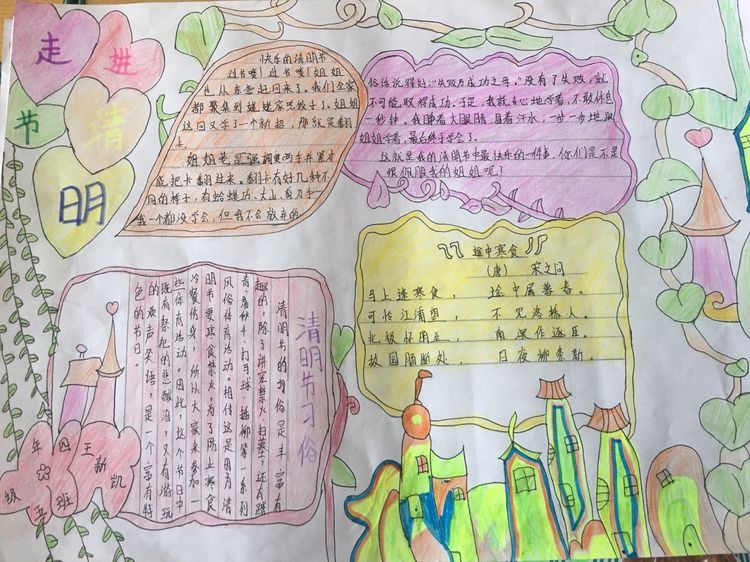 走进
清
节
明
快乐的清明节
过节喽!过节喽!姐姐
也从东营赶回来了。我们全家
都聚集到姥姥家吃饺子了。姐姐
这回又学了一个新招,那就是翻
卡。
姐姐总是强调要两手并紧才
能把卡翻过来。翻卡有好几种不
同的样子,有蛤蟆功、大山、
我一个都没学会,但我不会放弃的
俗话说得好:“失败乃成功之母。”没有了失败,就
不可能取得成功。于是,我就专心地学着,不敢休息
一秒钟。我睁着大眼睛,冒着汗水,一步一步地跟
姐姐学着,最后终于学会了。
这就是我的清明节中最快乐的一件事,你们是不是
很佩服我的姐姐呢?
途中寒食
(唐) 宋之问
马上逢寒食, 途中属暮春。
可怜江浦望, 不见洛桥人。
北极怀明主, 南溟作逐臣。
故园肠断处, 日夜柳条新。
清明节习俗
清明节的习俗是丰富有
趣的,除了讲究禁火、扫墓,还有踏
青、荡秋千、打马球、插柳等一系列
风俗体育活动。相传这是因为清
明节要寒食禁火,为了防止寒食
冷餐伤身,所以大家来参加一
些体育活动。因此,这个节日中
既有祭扫的悲酸泪,又有游玩
的欢声笑语,是一个富有特
色的节日。
四年级
五班
王新凯